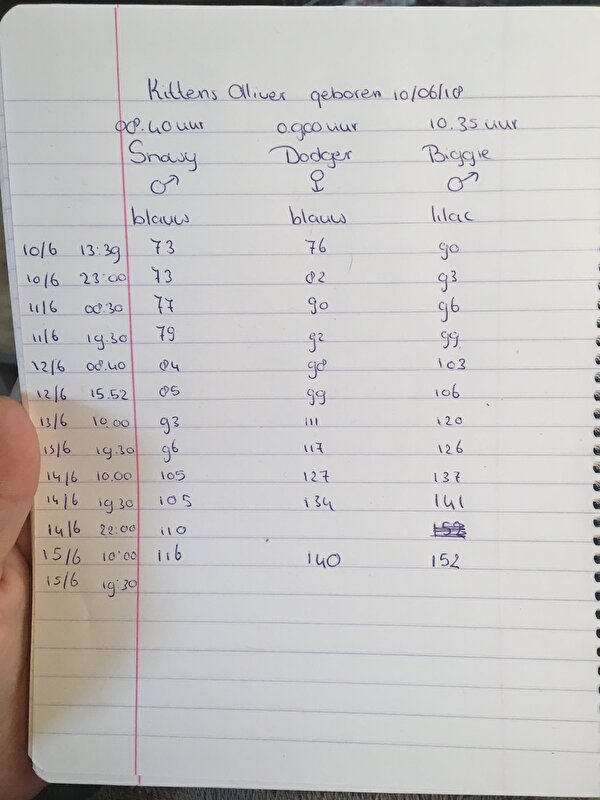 Kittens Olliver geboren 10/06/18
08.40 uur 0.900 uur 10.35 uur
Snavy Dodger Biggie
♂ ♀ ♂
blauw blauw lilac
10/6 13:39 73 76 90
10/6 23:00 73 82 93
11/6 08.30 77 90 96
11/6 19.30 79 92 99
12/6 08.40 84 98 103
12/6 15.52 85 99 106
13/6 10.00 93 111 120
13/6 19.30 96 117 126
14/6 10.00 105 127 137
14/6 19.30 105 134 141
14/6 22:00 110
15/6 10:00 116 140 152
15/6 19:30